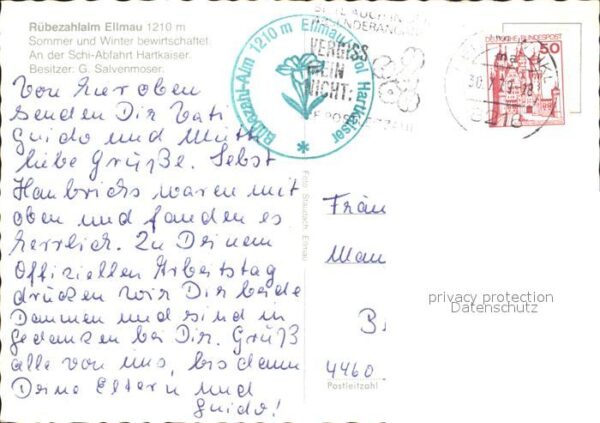 Rübezahlalm Ellmau 1210 m
Sommer und Winter bewirtschaftet.
An der Schi-Abfahrt Hartkaiser.
Besitzer: G. Salvenmoser.
Von hier oben
senden Dir Vati
Guido und Mutti
liebe Grüße. Selbst
Haubrichs waren mit
oben und fanden es
herrlich. Zu Deinem
Offiziellen Arbeitstag
drücken wir Dir beide
Daumen und sind in
Gedanken bei Dir. Grüß
alle von uns, bis dann
Deine Eltern und
Guido!
Rübezahl-Alm 1210 m Ellmau Tirol Hartkaiser
VERGISS
MEIN
NICHT.
DEUTSCHE BUNDESPOST
50
Foto
Ellmau
Fräu
Mau
B
4460
Postleitzahl
privacy protection
Datenschutz